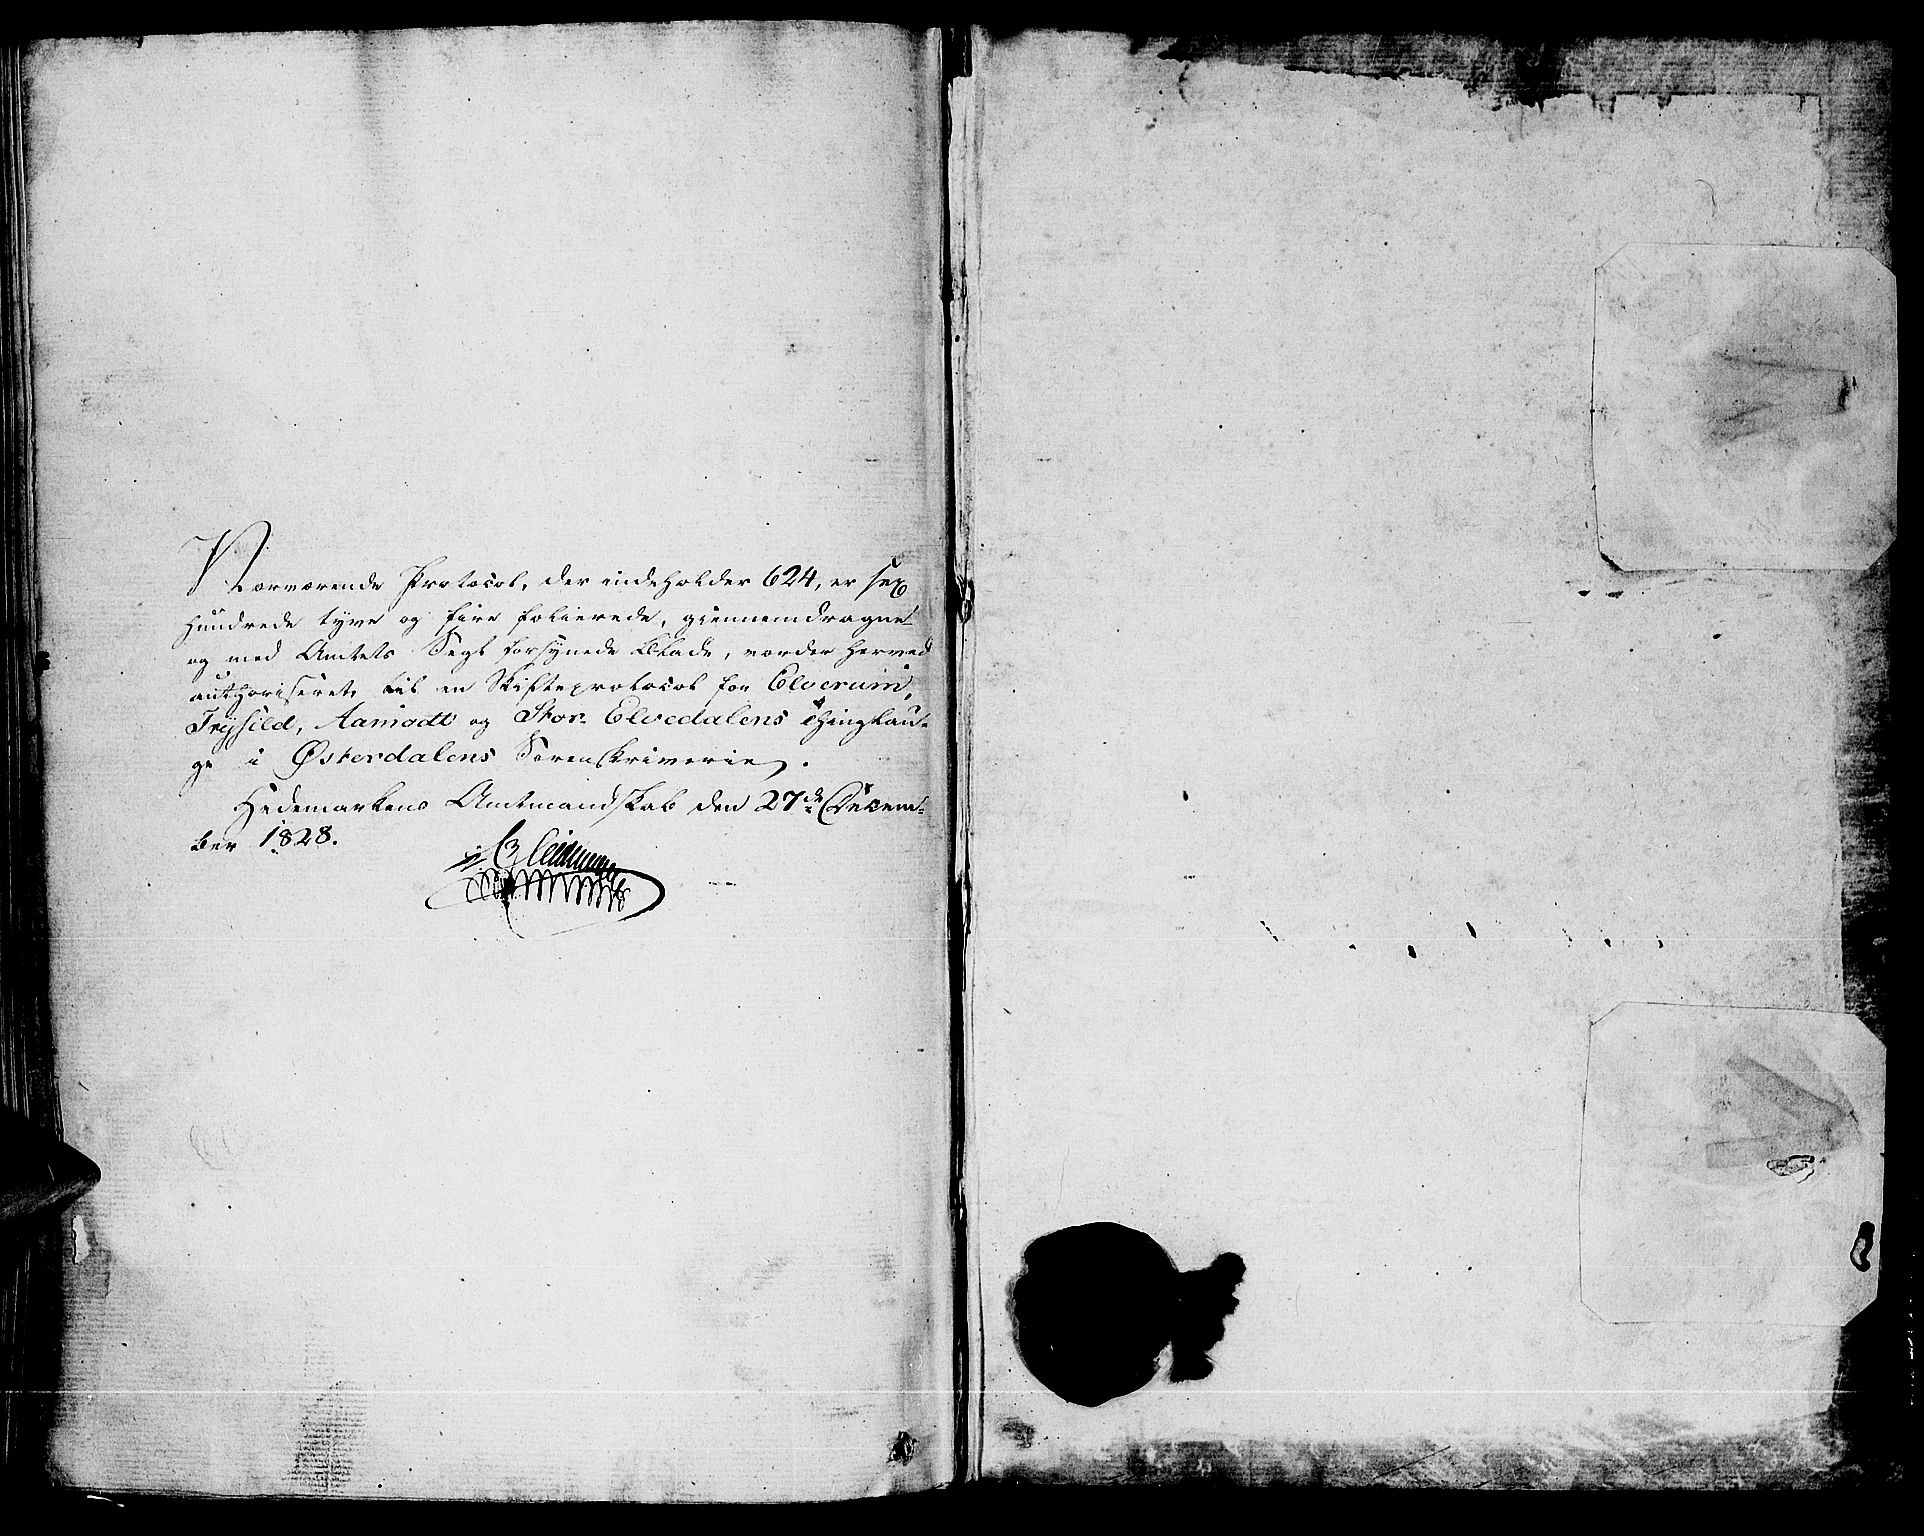 Nærværende Protocol, der indeholder 624, er sex
hundrede tyve og fire folierede, giennemdragne
og med Amtets Segl forsynede Blade, vorder herved
authoriseret til en Skifteprotocol for Elverum,
Trysild, Aamodt og Stor-Elvedalens Thinglau-
ge i Østerdalens Sorenskriverie.
Hedemarkens Amtmandskab den 27de Decem-
ber 1828.